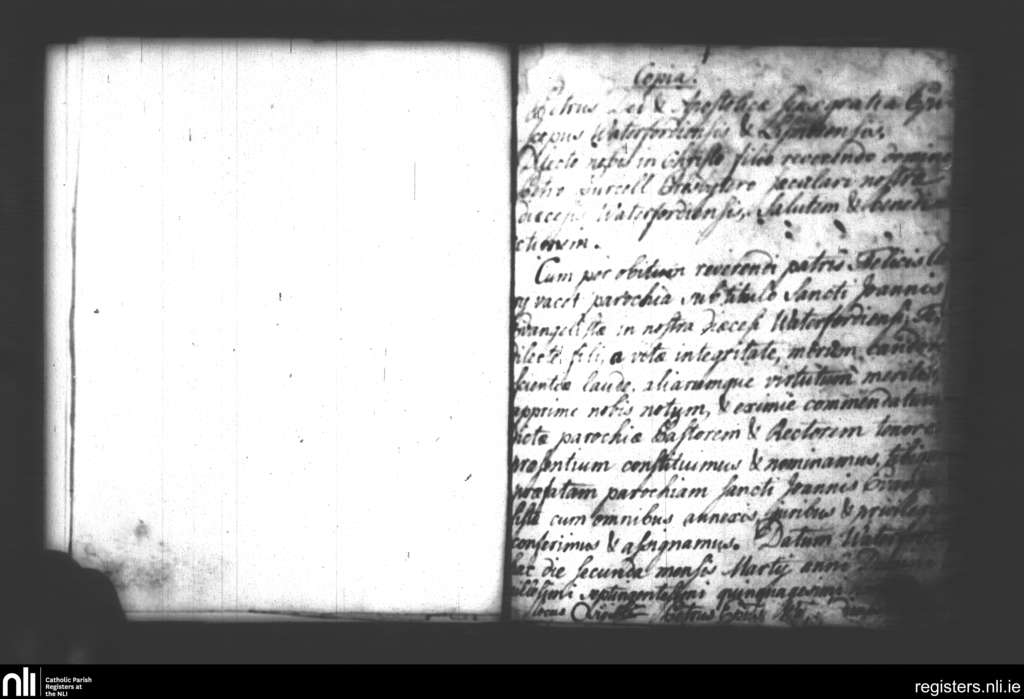 Copia.
Petrus Dei & Apostolicæ Sedis gratia Epi-
scopus Waterfordiensis & Lismoriensis.
Dilecto nobis in Christo filio reverendo domino
Petro Purcell Presbytero sæculari nostræ
diæcesis Waterfordiensis, Salutem & benedi-
ctionem.
Cum per obitum reverendi patris Felicis
vacet parochia sub titulo Sancti Joannis
Evangelistæ in nostra diæcesi Waterfordiensi, Te,
dilecte fili, a vitæ integritate, morum candore
scientiæ laude, aliarumque virtutum meritis,
apprime nobis notum, & eximie commendatum
dictæ parochiæ Pastorem & Rectorem tenore
præsentium constituimus & nominamus, tibique
præfatam parochiam Sancti Joannis Evange-
listæ cum omnibus annexis, juribus & privilegiis
conferimus & assignamus. Datum Waterfordiæ
hac die secunda mensis Martij anni Domini
millesimi septingentesimi quinquagesimi
locus Sigilli Petrus Epus
nli
Catholic Parish
Registers at
the NLI
registers.nli.ie